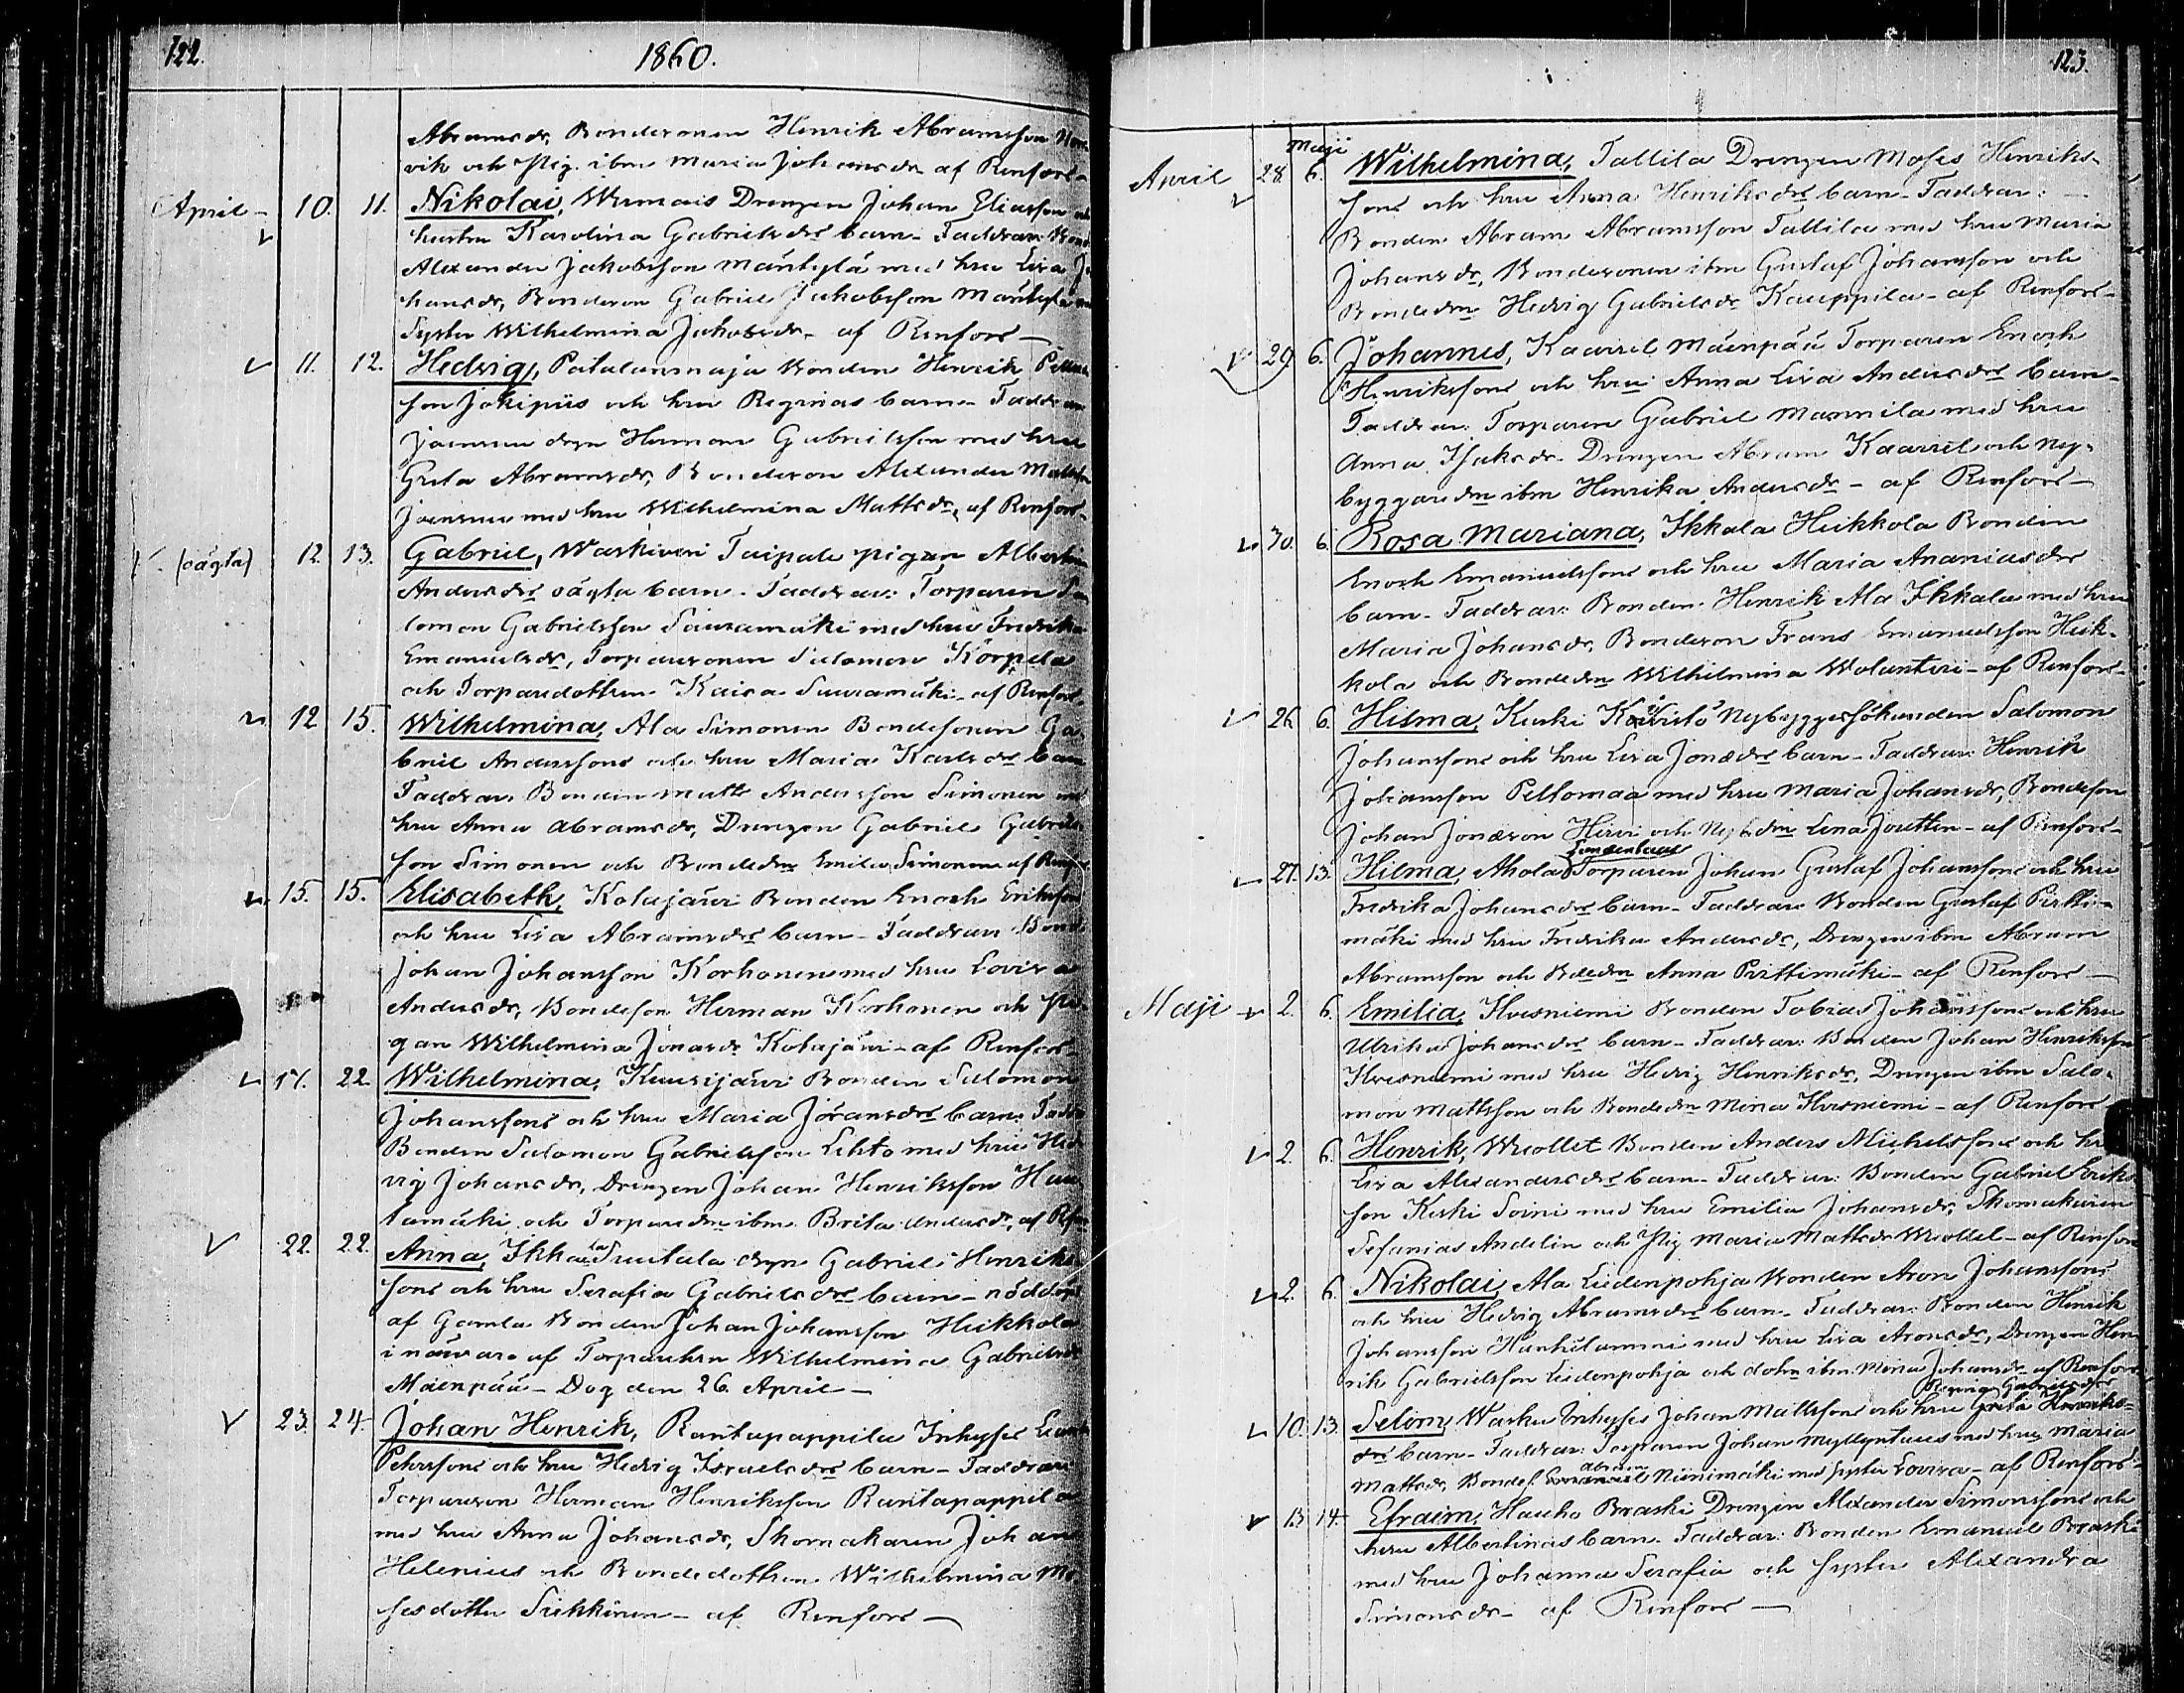 122.
1860.
Abramsdr, Bondesonen Henrik Abramsson
vik och Pig. ibm Maria Johansdr af Renfors
April 10. 11. Nikolai, Drengen Johan Eliasson
hustru Karolina Gabrielsdrs barn. Faddrar:
Alexander Jakobsson Mäntylä med hru Lisa
hansdr, Bondeson Gabriel Jakobsson Mäntylä
Syster Wilhelmina Jakobsdr af Renfors
11. 12. Hedvig, Bonden Henrik
son Jokipiis och hru Reginas barn. Faddrar
drgn Herman Gabrielsson med hru
Greta Abramsdr, Bondeson Alexander
med hru Wilhelmina Mattsdr, af Renfors
(oägta) 12. 13. Gabriel, Waskivori Taipale pigan
Andersdrs oägta barn. Faddrar: Torparen Sa
lomon Gabrielsson Sauramäki med hru Fredrika
Emanuelsdr, Torparesonen Salomon Korpela
och Torparedottern Kaisa Sauramäki af Renfors
12 15. Wilhelmina, Ala Simonen Bondesonen Ga
briel Anderssons och hru Maria Karlsdrs barn
Faddrar: Bonden Matts Andersson Simonen med
hru Anna Abramsdr, Drengen Gabriel Gabriels
son Simonen och Bondedrn Emilia Simonen af
15. 15. Elisabeth, Kotajärvi Bonden Enoch Eriksson
och hru Lisa Abramsdrs barn. Faddrar: Bond
Johan Johansson Korhonen med hru Lovisa
Andersdr, Bondeson Herman Korhonen och Pi
gan Wilhelmina Jonasdr Kotajärvi af Renfors
17. 22. Wilhelmina, Kuusijärvi Bonden Salomon
Johanssons och hru Maria Jöransdrs barn. Fadd
Bonden Salomon Gabrielsson Lehto med hru Hed
vig Johansdr, Drengen Johan Henriksson
tamäki och Torparedrn ibm Brita Andersdr, af
22. 22. Anna, Ikkala drgn Gabriel Henriks
sons och hru Serafia Gabrielsdrs barn nöddöpt
af Gamla Bonden Johan Johansson Heikkola
i närvaro af Torparehru Wilhelmina Gabrielsdr
Mäenpää Dog den 26. April
23. 24. Johan Henrik, Rantapappila Inhyses
Pehrssons och hru Hedvig Israelsdrs barn. Faddrar
Torpareson Herman Henriksson Rantapappila
med hru Anna Johansdr, Skomakaren Johan
Helenius och Bondedottern Wilhelmina Mo
sesdotter Sikkinen af Renfors
123.
Maji
April 28. 6. Wilhelmina, Tallila Drengen Moses Henriks
sons och hru Anna Henriksdrs barn. Faddrar:
Bonden Abram Abramsson Tallila med hru Maria
Johansdr, Bondesonen ibm Gustaf Johansson och
Bondedrn Hedvig Gabrielsdr Kauppila af Renfors
29. 6. Johannes, Kaarrel Mäenpää Torparen Enoch
Henrikssons och hru Anna Lisa Andersdrs barn
Faddrar: Torparen Gabriel Mannila med hru
Anna Isaksdr Drengen Abram Kaarrel och Ny
byggaredrn ibm Henrika Andersdr af Renfors
30. 6. Rosa Mariana, Ikkala Heikkola Bonden
Enoch Emanuelssons och hru Maria Ananiasdrs
barn. Faddrar: Bonden Henrik Ala Ikkala med hru
Maria Johansdr, Bondeson Frans Emanuelsson Heik
kola och Bondedrn Wilhelmina Wolanteri af Renfors
26. 6. Hilma, Koski Koivisto Nybyggessökanden Salomon
Johanssons och hru Lisa Jonædrs barn. Faddrar: Henrik
Johansson Peltomaa med hru Maria Johansdr, Bondeson
Johan Jonæson Hirvi och Lena af Renfors
27. 13. Hilma, Ahola Torparen Johan Gustaf Johanssons och hru
Fredrika Johansdrs barn. Faddrar: Bonden Gustaf Pirtti
mäki med hru Fredrika Andersdr, Drengen ibm Abram
Abramsson och Bdedrn Anna Pirttimäki af Renfors
Maji 2. 6. Emilia, Hvesniemi Bonden Tobias Johanssons och hru
Ulrika Johansdrs barn. Faddrar: Bonden Johan Henriksson
Hvesniemi med hru Hedvig Henriksdr, Drengen ibm Salo
mon Mattsson och Bondedrn Mina Hvesniemi af Renfors
2. 6. Henrik, Wuollet Bonden Anders Michelssons och hru
Lisa Alexandersdrs barn. Faddrar: Bonden Gabriel Eriks
son Koski Soini med hru Emilia Johansdr, Skomakaren
Sefanias Andelin och Pig Maria Mattsdr Wuollet af Renfors
2. 6. Nikolai, Ala Liedenpohja Bonden Aron Johanssons
och hru Hedvig Abramsdrs barn. Faddrar: Bonden Henrik
Johansson med hru Lisa Aronsdr, Drengen Hen
rik Gabrielsson Liedenpohja och ibm Maria Johansdr af Renfors
Gabrielsdrs
10. 13. Selim, Wasku Inhyses Johan Mattssons och hru Greta Henriks
drs barn. Faddrar: Torparen Johan Myllyntaus med hru Maria
Abram
Mattsdr, Bondes. Emanuel Niinimäki med syster Lovisa af Renfors
13 14. Efraim, Hauho Braski Drengen Alexander Simonssons och
hru Albertinas barn. Faddrar: Bonden Emanuel Braski
med hru Johanna Serafia och syster Alexandra
Simonsdr af Renfors